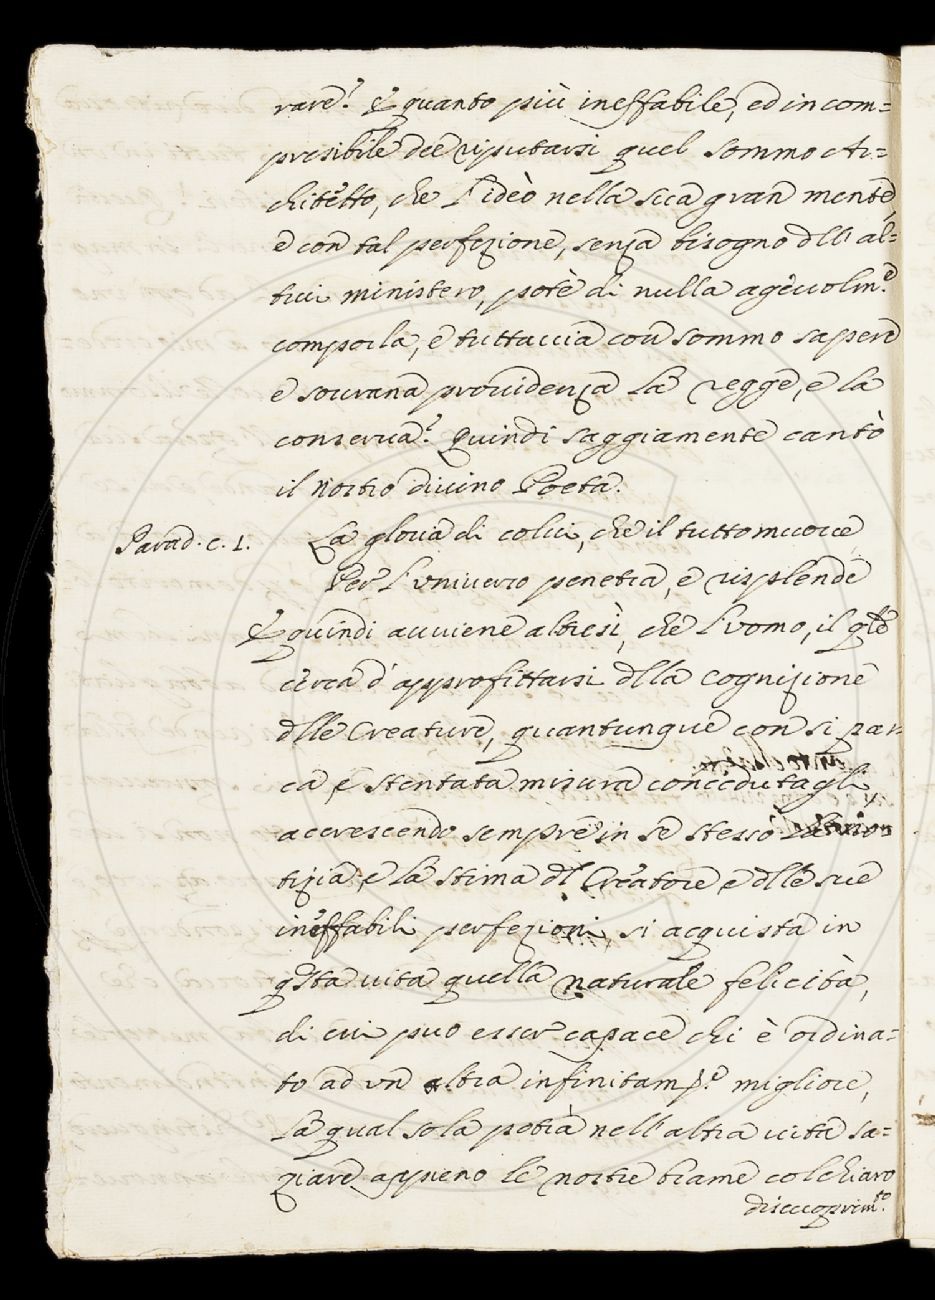 rare? E quanto più ineffabile, ed incom=
presibile dee riputarsi quel sommo Ar=
chitetto, che l'ideò nella sua gran mente,
e con tal perfezione, senza bisogno dll' al=
trui ministero, potè di nulla agevolm.e
comporla, e tuttavia con sommo sapere
e sovrana providenza la regge, e la
conserva? Quindi saggiamente cantò
il nostro divino Poeta.
Parad. c. 1. La gloria di colui, che il tutto muove
Per l'vniverso penetra, e risplende
E quindi avviene altresì, che l'vomo, il qle
cerca d'approfittarsi dlla cognizione
dlle Creature, quantunque con sì par
ca e stentata misura concedutagli
accrescendo sempre in se stesso la no
tizia, e la stima dl Creatore e dlle sue
ineffabili perfezioni, si acquista in
qsta vita quella naturale felicità,
di cui può esser capace chi è ordina=
to ad vn altra infinitam.e migliore,
la qual sola potrà nell' altra vita sa=
ziare appieno le nostre brame col chiaro
discuoprim.to